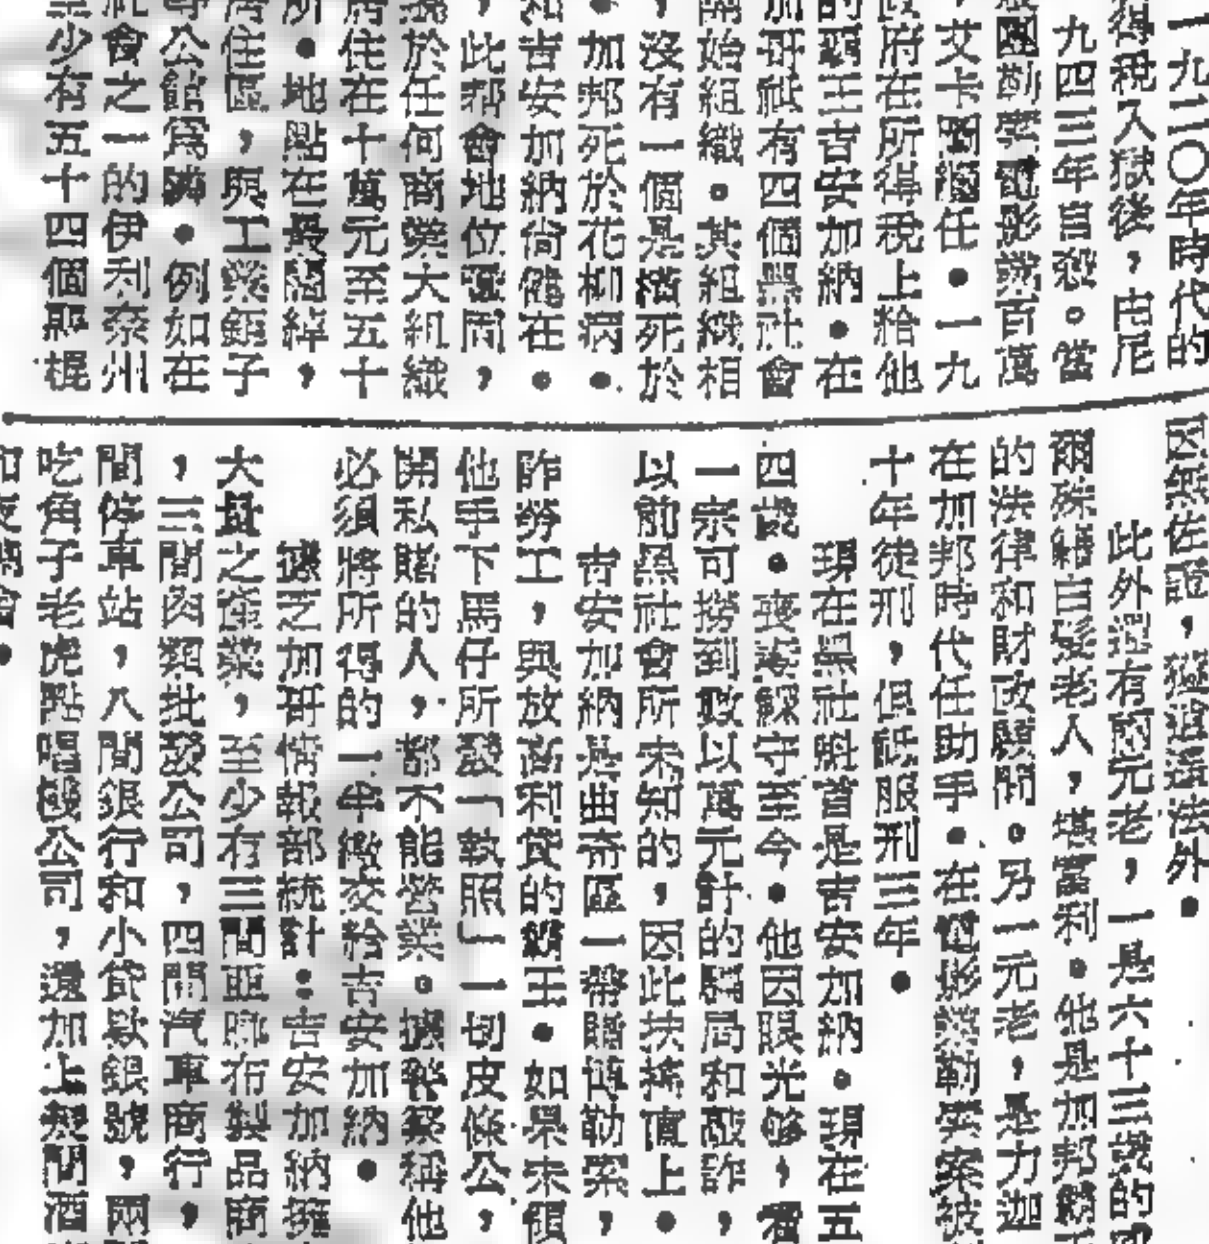 一九二〇年時代的
得稅入獄後，由尼
九四三年自殺。當
團勒索電影業百萬
，艾卡繼任．一九
政府在所得稅上給他
的霸王吉安加納．在
加哥祇有四個黑社會
開始組織。其組織相
，沒有一個是橫死於
．加邦死於花柳病．
和吉安加納尚健在．
，此邦會地位穩固，
於任何商業大組織
居住在十萬元至五十
所．地點在最闊綽，
居住區，與工業鉅子
公館為隣．例如在
社會之一的伊利奈州
至少有五十四個惡棍
因無佐證，逍遙法外．
此外還有兩元老，一是六十三歲的
爾殊綽白髮老人，堪富利。他是加邦
的法律和財政顧問。另一元老，是力迦
在加邦時代任助手．在電影業勒索案被
十年徒刑，但祇服刑三年．
現在黑社魁首是吉安加納。現在五
四歲．喪妻鰥守至今．他因眼光够，看
一宗可撈到數以萬元計的賭局和敲詐，
以前黑社會所未知的，因此扶搖直上．
吉安加納是曲奇區一帶賭博勒索，
詐勞工，與放高利貸的霸王．如果未領
他手下馬仔所發「執照」一切皮條公，
開私賭的人，都不能營業。據警察稱他
必須將所得的一半繳交給吉安加納．
據芝加哥情報部統計：吉安加納擁
大量之產業，至少有三間亞麻布製品商
，三間肉類批發公司，四間汽車商行，
間停車站，八間銀行和小貸款銀號，兩
吃角子老虎點唱機公司，還加上幾間酒
和夜總會．